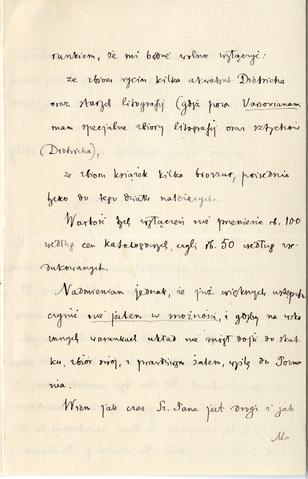 runkiem, że mi będzie wolno wyłączyć:
ze zbioru rycin kilka akwatint Dietricha
oraz starych litografij (gdyż poza Varsovianami
mam specjalne zbiory litografij oraz sztychów
(Dietricha),
ze zbioru książek kilka broszur, pośrednio
tylko do tego działu należących.
Wartość tych wyłączeń nie przeniesie rb. 100
według cen katalogowych, czyli rb. 50 według zre-
dukowanych.
Nadmieniam jednak, że już większych ustępstw
czynić nie jestem w możności, i gdyby na wska-
zanych warunkach układ nie mógł dojść do skut-
ku, zbiór mój, z prawdziwym żalem, wyślę do Pozna-
nia.
Wiem jak czas Sz. Pana jest drogi i jak